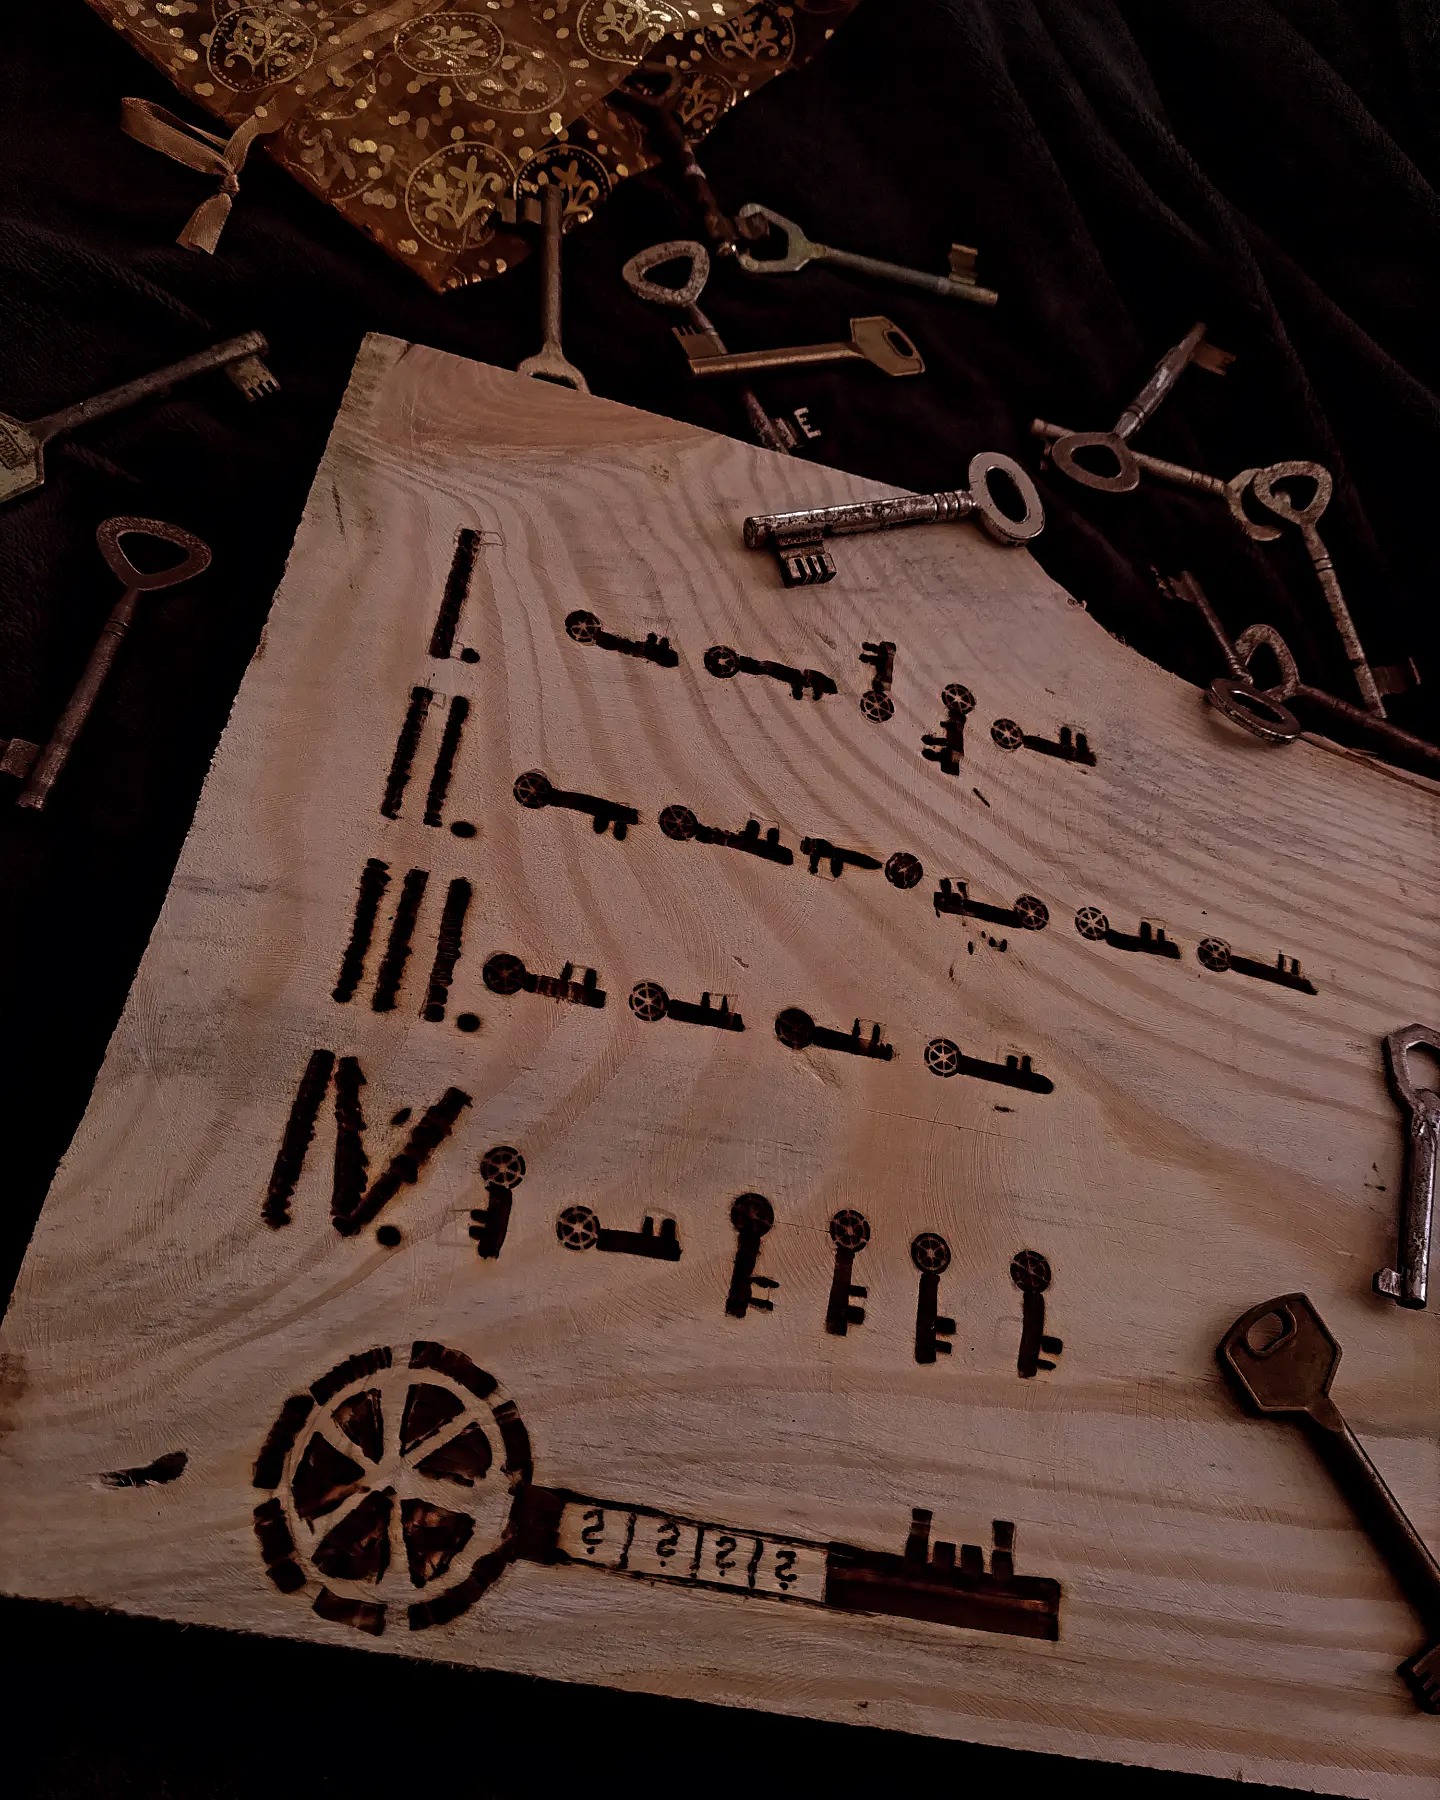 I.
II.
III.
IV.
? | ? | ? | ?